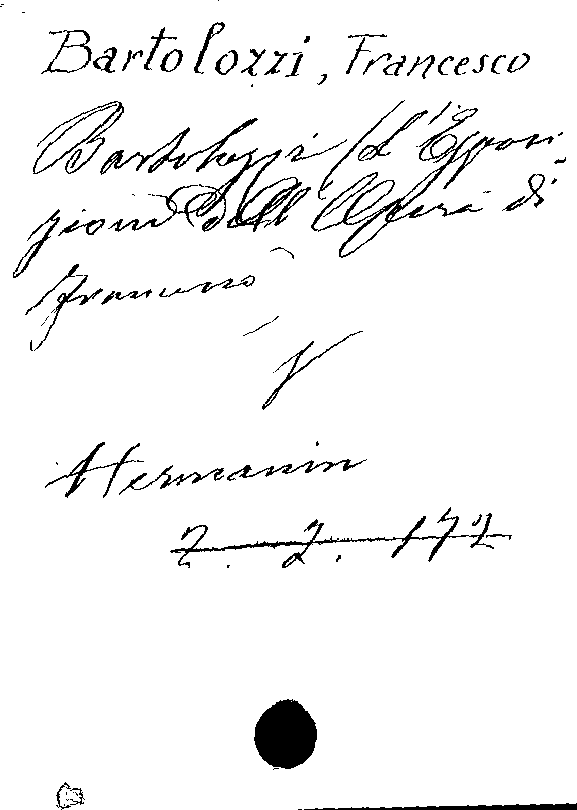 Bartolozzi, Francesco
Bartolozzi (L'Esposi-
zione dell'Opera di
Francesco
V
Hermanin
2. 2. 172